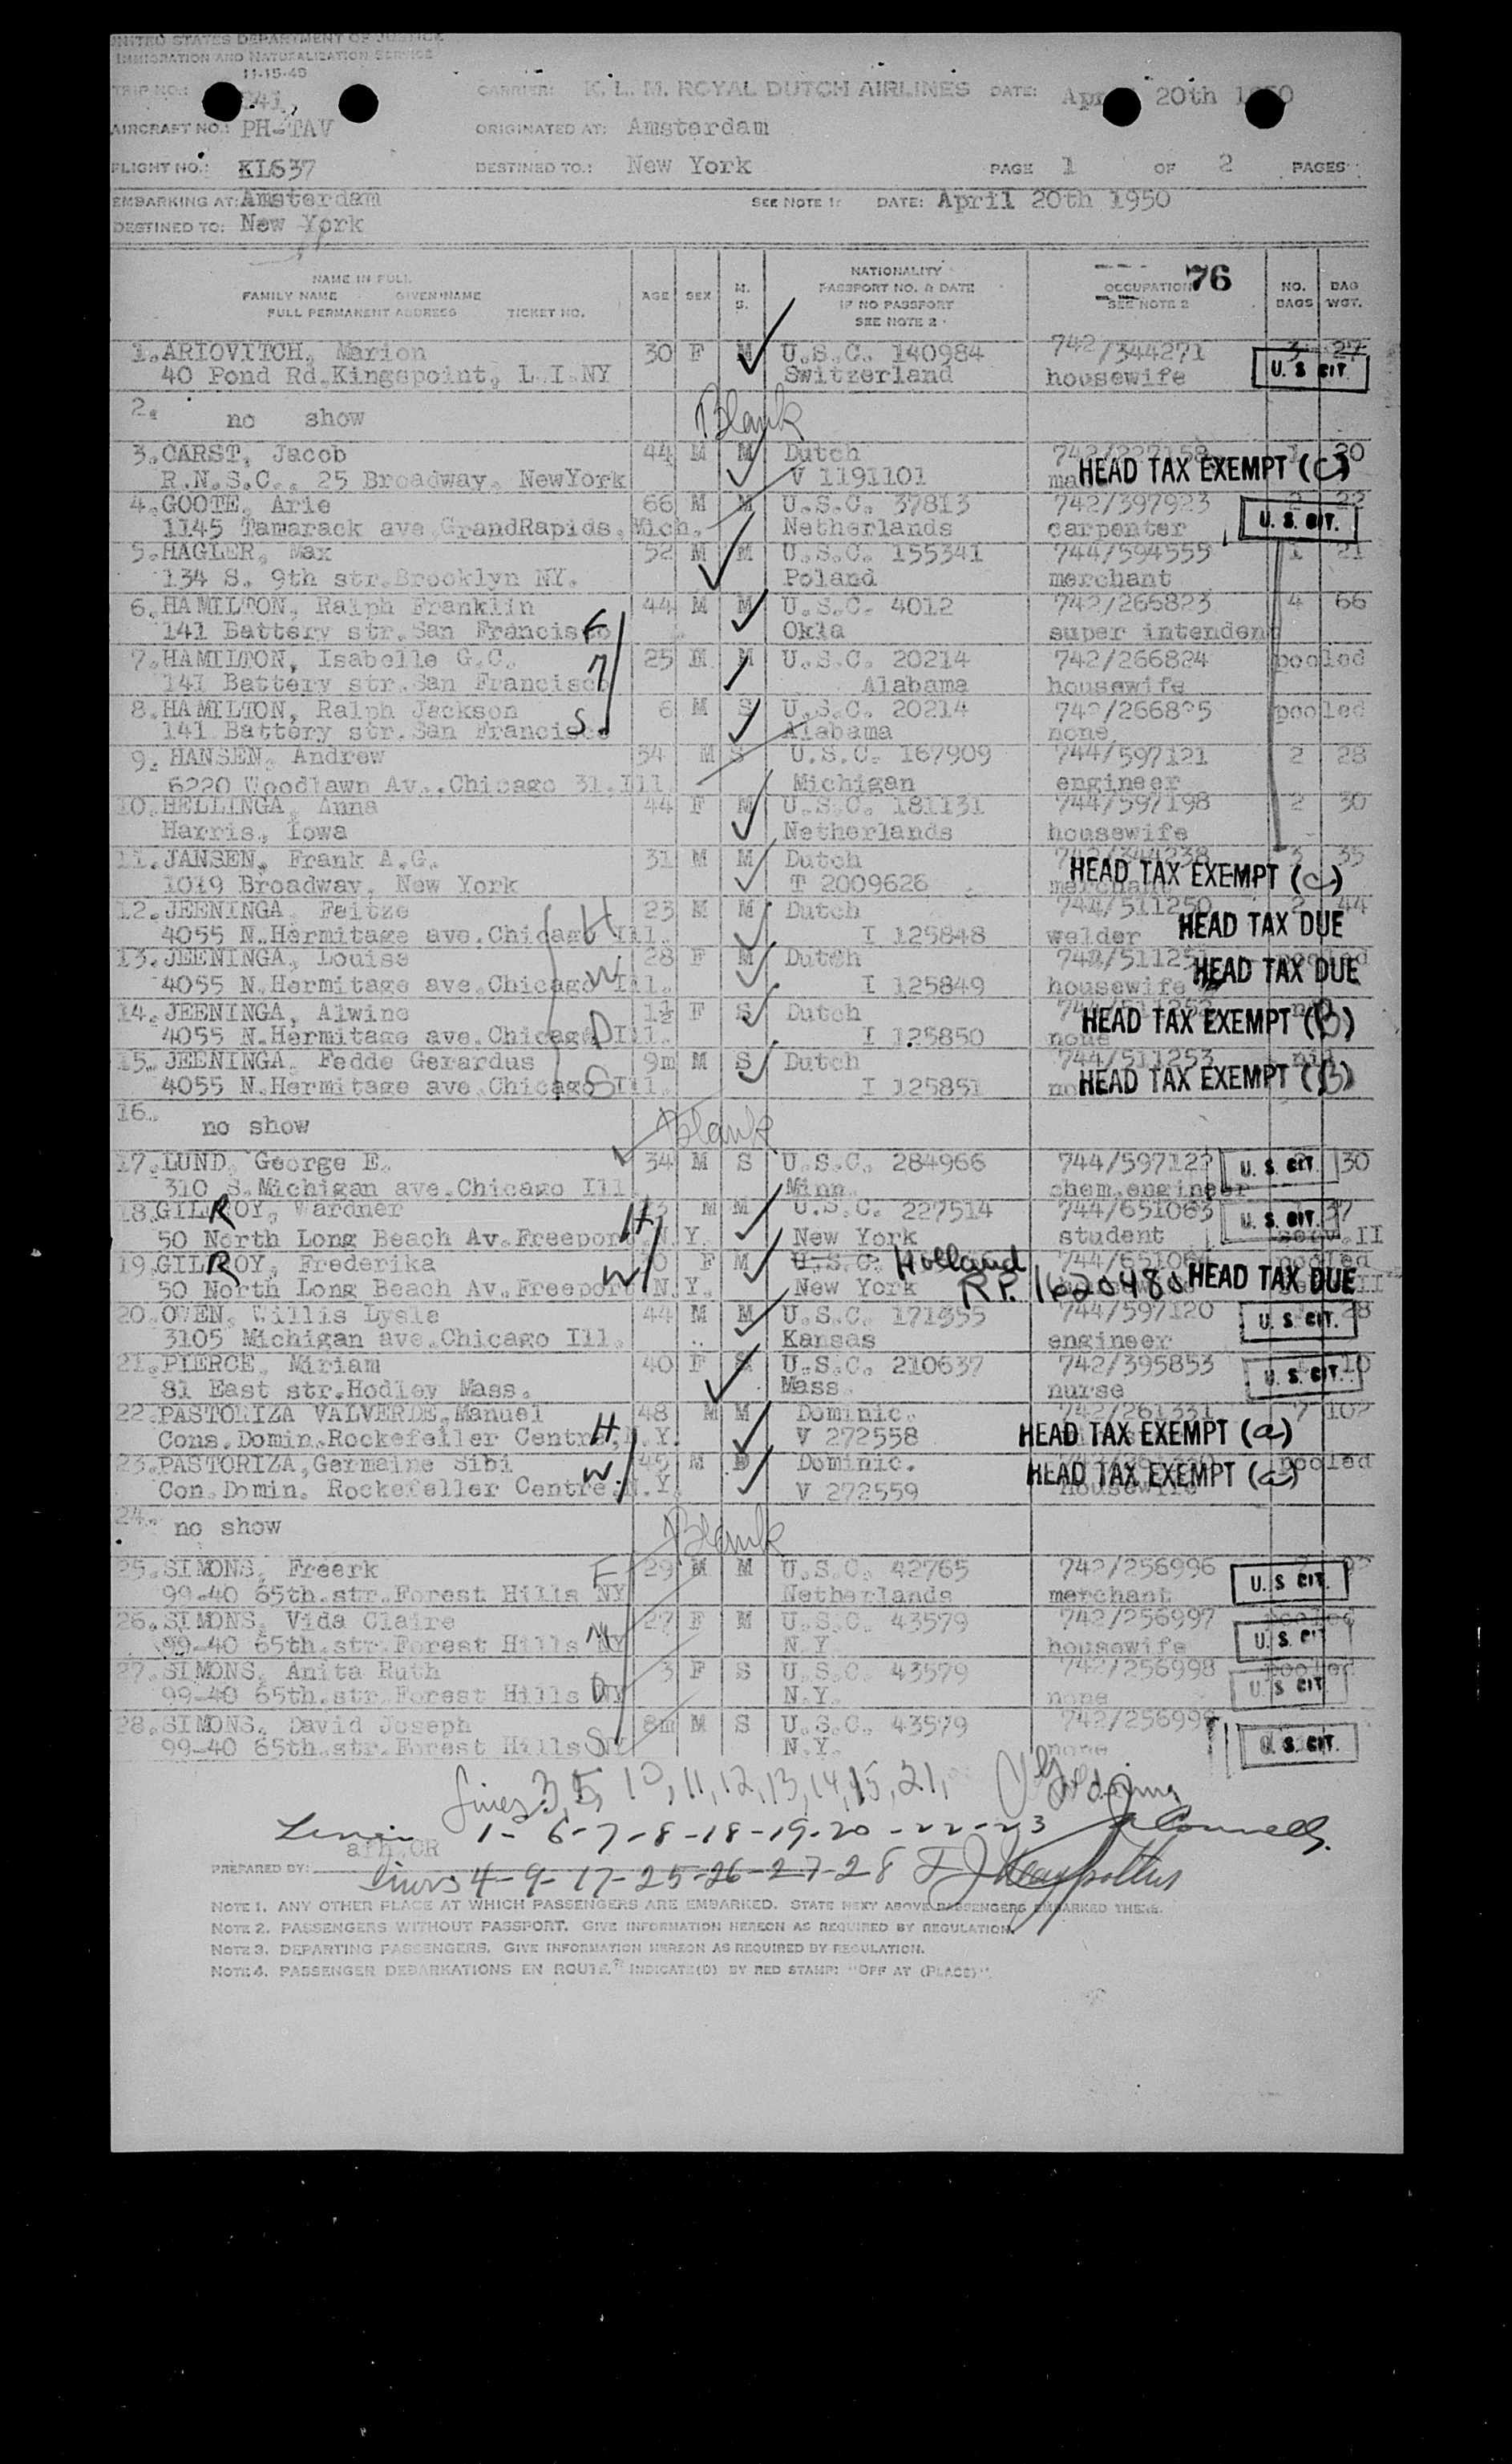 UNITED STATES DEPARTMENT OF JUSTICE
IMMIGRATION AND NATURALIZATION SERVICE
11-15-40
TRIP NO.: CARRIER: K. L. M. ROYAL DUTCH AIRLINES DATE: April 20th 1950
AIRCRAFT NO.: PH-TAV ORIGINATED AT: Amsterdam
FLIGHT NO.: KL637 DESTINED TO.: New York PAGE 1 OF 2 PAGES
EMBARKING AT: Amsterdam SEE NOTE 1: DATE: April 20th 1950
DESTINED TO: New York
NAME IN FULL
FAMILY NAME GIVEN NAME
FULL PERMANENT ADDRESS TICKET NO.
AGE SEX M. S.
NATIONALITY
PASSPORT NO. & DATE
IF NO PASSPORT
SEE NOTE 2
OCCUPATION 76
SEE NOTE 2
NO. BAGS BAG WGT.
1. ARIOVITCH, Marion 30 F M U.S.C. 140984 742/344271 3 27
40 Pond Rd.Kingspoint, L.I.NY Switzerland housewife U. S CIT.
2. no show Blank
3. CARST, Jacob 44 M M Dutch 742/227158 1 30
R.N.S.C., 25 Broadway, NewYork V 1191101 HEAD TAX EXEMPT (C)
4. GOOTE, Arie 66 M M U.S.C. 37813 742/397923 2 22
1145 Tamarack ave.GrandRapids,Mich. Netherlands carpenter U. S. CIT.
5. HAGLER, Max 52 M M U.S.C. 155341 744/594555 1 21
134 S. 9th str.Brooklyn NY. Poland merchant
6. HAMILTON, Ralph Franklin 44 M M U.S.C. 4012 742/266823 4 66
141 Battery str.San Francisco F Okla super intendent
7. HAMILTON, Isabelle G.C. 25 M M U.S.C. 20214 742/266824 pooled
141 Battery str.San Francisco M Alabama housewife
8. HAMILTON, Ralph Jackson 6 M S U.S.C. 20214 742/266825 pooled
141 Battery str.San Francisco S Alabama none
9. HANSEN, Andrew 54 M S U.S.C. 167909 744/597121 2 28
6220 Woodlawn Av..Chicago 31.Ill Michigan engineer
10. HELLINGA, Anna 44 F M U.S.C. 181131 744/597198 2 30
Harris, Iowa Netherlands housewife
11. JANSEN, Frank A.G. 31 M M Dutch 742/344238 3 35
1019 Broadway, New York T 2009626 merchant HEAD TAX EXEMPT (C)
12. JEENINGA, Feitze H 23 M M Dutch 744/511250 2 44
4055 N.Hermitage ave.Chicago Ill. I 125848 welder HEAD TAX DUE
13. JEENINGA, Louise W 28 F M Dutch 744/511251 pooled
4055 N.Hermitage ave.Chicago Ill. I 125849 housewife HEAD TAX DUE
14. JEENINGA, Alwine 1½ F S Dutch 744/511252
4055 N.Hermitage ave.Chicago D Ill. I 125850 none HEAD TAX EXEMPT (B)
15. JEENINGA, Fedde Gerardus 9m M S Dutch 744/511253 nil
4055 N.Hermitage ave.Chicago S Ill. I 125851 HEAD TAX EXEMPT (B)
16. no show Blank
17. LUND, George E. 34 M S U.S.C. 284966 744/597122 30
310 S.Michigan ave.Chicago Ill Minn. chem.engineer U. S. CIT.
18. GILROY, Wardner M M U.S.C. 227514 744/651063 37
50 North Long Beach Av.Freeport H N.Y. New York student U. S. CIT.
19. GILROY, Frederika F M U.S.C. Holland 744/651064 pooled
50 North Long Beach Av.Freeport W N.Y. New York R.P. 1620480 HEAD TAX DUE
20. OWEN, Willis Lysle 44 M M U.S.C. 171355 744/597120 28
3105 Michigan ave.Chicago Ill. Kansas engineer U. S. CIT.
21. PIERCE, Miriam 40 F S U.S.C. 210637 742/395853 1 10
81 East str.Hodley Mass. Mass. nurse U. S. CIT.
22. PASTORIZA VALVERDE,Manuel 48 M M Dominic. 742/261331 7 102
Cons.Domin.Rockefeller Centre, H N.Y. V 272558 HEAD TAX EXEMPT (a)
23. PASTORIZA,Germaine Sibi 45 M Dominic. pooled
Con.Domin. Rockefeller Centre, W N.Y. V 272559 housewife HEAD TAX EXEMPT (a)
24. no show Blank
25. SIMONS, Freerk F 29 M M U.S.C. 42765 742/256996
99-40 65th.str.Forest Hills NY Netherlands merchant U. S CIT.
26. SIMONS, Vida Claire 27 F M U.S.C. 43579 742/256997 pooled
99-40 65th.str.Forest Hills M NY N.Y. housewife U. S. CIT
27. SIMONS, Anita Ruth 3 F S U.S.C. 43579 742/256998 pooled
99-40 65th.str.Forest Hills D NY N.Y. none U. S CIT
28. SIMONS, David Joseph 8m M S U.S.C. 43579 742/256999
99-40 65th.str.Forest Hills S NY N.Y. none U. S. CIT.
Lines 3, 5, 10, 11, 12, 13, 14, 15, 21,
1- 6-7-8-18-19-20-22-23
PREPARED BY: Lines 4-9-17-25-26-27-28
NOTE 1. ANY OTHER PLACE AT WHICH PASSENGERS ARE EMBARKED. STATE NEXT ABOVE PASSENGERS EMBARKED THERE.
NOTE 2. PASSENGERS WITHOUT PASSPORT. GIVE INFORMATION HEREON AS REQUIRED BY REGULATION.
NOTE 3. DEPARTING PASSENGERS. GIVE INFORMATION HEREON AS REQUIRED BY REGULATION.
NOTE 4. PASSENGER DEBARKATIONS EN ROUTE. INDICATE(D) BY RED STAMP: "OFF AT (PLACE)".